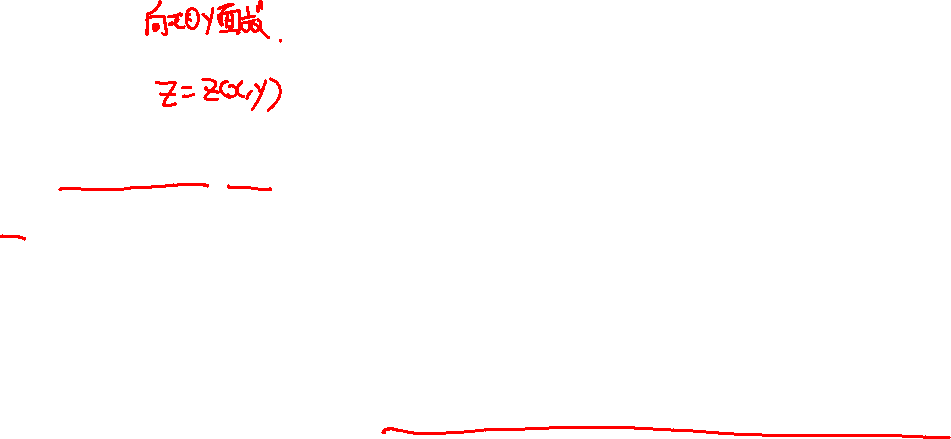 向xOy面投.
z=z(x,y)